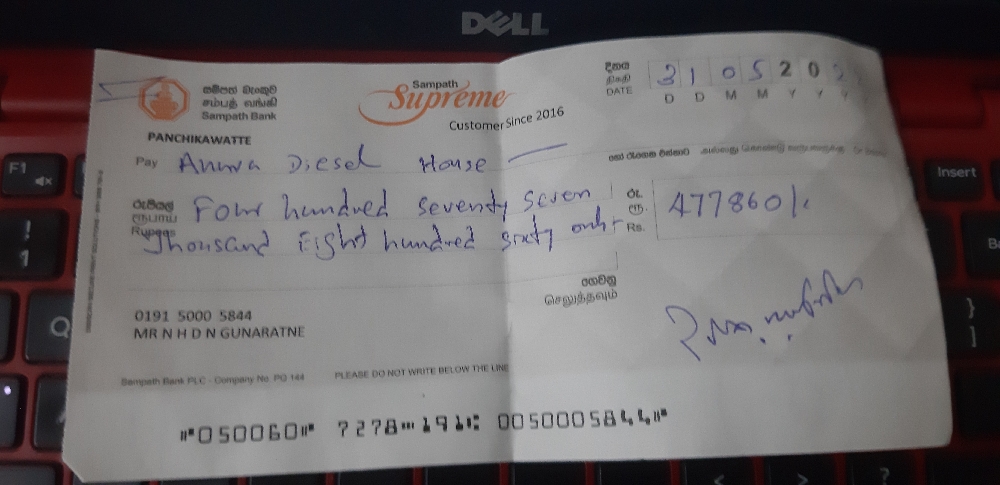 DELL
සම්පත් බැංකුව
சம்பத் வங்கி
Sampath Bank
Sampath
Supreme
Customer Since 2016
දිනය
திகதி
DATE
3 1 0 5 2 0 2
D D M M Y Y Y Y
PANCHIKAWATTE
Pay Anura Diesel House
රුපියල්
ரூபாய்
Rupees
Four hundred seventy seven
Thousand Eight hundred sixty only
රු.
ரூ.
Rs.
477860/.
ගෙවනු
செலுத்தவும்
0191 5000 5844
MR N H D N GUNARATNE
Sampath Bank PLC - Company No. PQ 144 PLEASE DO NOT WRITE BELOW THE LINE
⑈050060⑈ 7278⑉191⑆ 0050005844⑈
F1
Insert
!
1
Q
}
]
<
>
?